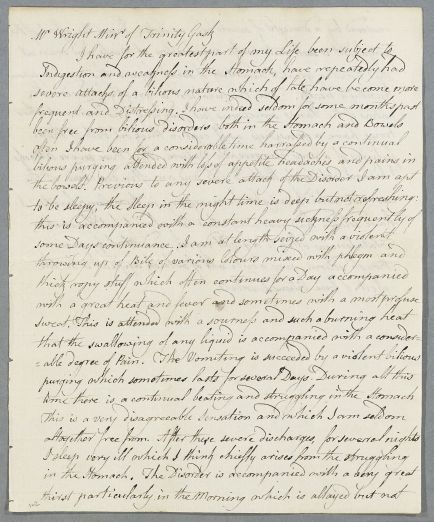 Mr Wright Minr of Trinity Gask
I have for the greatest part of my Life been subject to
Indigestion and weakness in the Stomach, have repeatedly had
severe attacks of a bilious nature which of late have become more
frequent and Distressing. I have indeed seldom for some months past
been free from bilious disorders both in the Stomach and Bowels
often I have been for a considerable time harrassed by a continual
bilous purging attended with loss of appetite headaches and pains in
the bowels. Previous to any severe attack of the Disorder I am apt
to be sleepy, the sleep in the night time is deep but not refreshing:
this is accompanied with a constant heavy sickness frequently of
some Days continuance. I am at length seized with a violent
throwing up of Bile of various colours mixed with phlegm and
thick ropy stuff which often continues for a Day accompanied
with a great heat and fever and sometimes with a most profuse
sweat. This is attended with a sourness and such a burning heat
that the swallowing of any liquid is accompanied with a consider-
=able degree of Pain. The Vomiting is succeeded by a violent bilious
purging which sometimes lasts for several Days. During all this
time there is a continual beating and struggling in the Stomach
this is a very disagreeable Sensation and which I am seldom
altogether free from. After these severe discharges, for several nights
I sleep very ill which I think chiefly arises from the struggling
in the Stomach. The Disorder is accompanied with a very great
thirst particularly in the Morning which is allayed but not